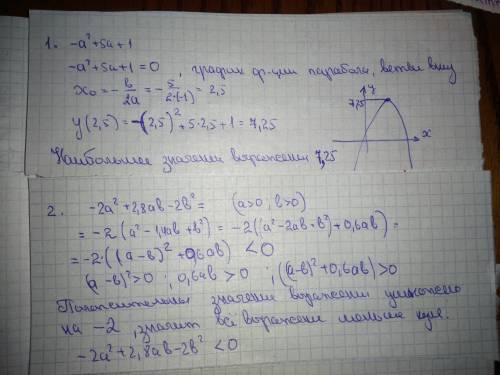 1. -a²+5a+1
-a²+5a+1=0, график ф-ции парабола, ветви вниз
x₀=-в/2a=-5/2·(-1)=2,5
y(2,5)=-(2,5)²+5·2,5+1=7,25
Наибольшее значение выражения 7,25
y
7,25
x
2. -2a²+2,8ab-2b²= (a>0, b>0)
=-2(a²-1,4ab+b²)=-2((a²-2ab+b²)+0,6ab)=
=-2·((a-b)²+0,6ab)<0
(a-b)²>0; 0,6ab>0; ((a-b)²+0,6ab)>0
Положительное значение выражения умножено
на -2, значит всё выражение меньше нуля.
-2a²+2,8ab-2b²<0